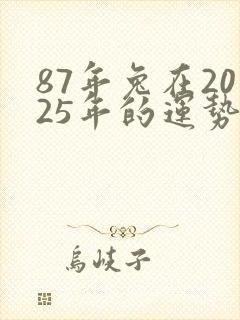 87年兔在20
25年的運势
烏峡子